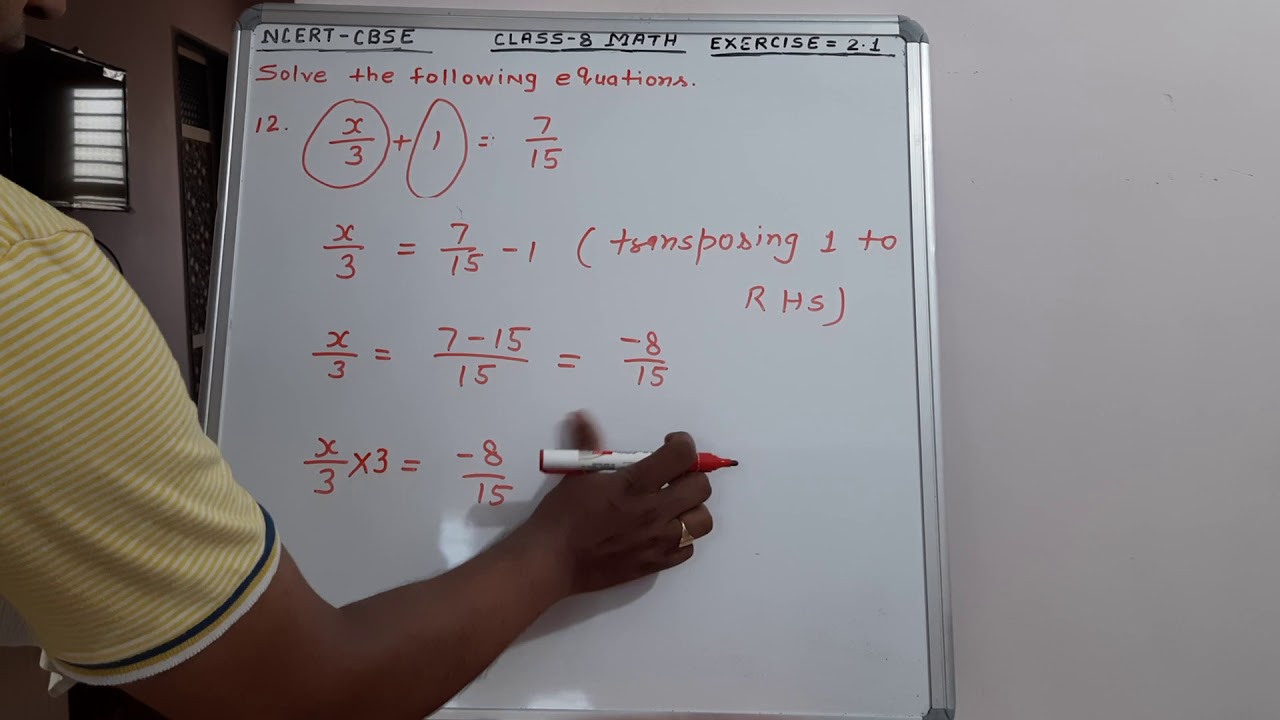 NCERT-CBSE CLASS-8 MATH EXERCISE = 2.1
Solve the following equations.
12. x/3 + 1 = 7/15
x/3 = 7/15 - 1 (transposing 1 to
RHS)
x/3 = 7-15/15 = -8/15
x/3 ×3 = -8/15